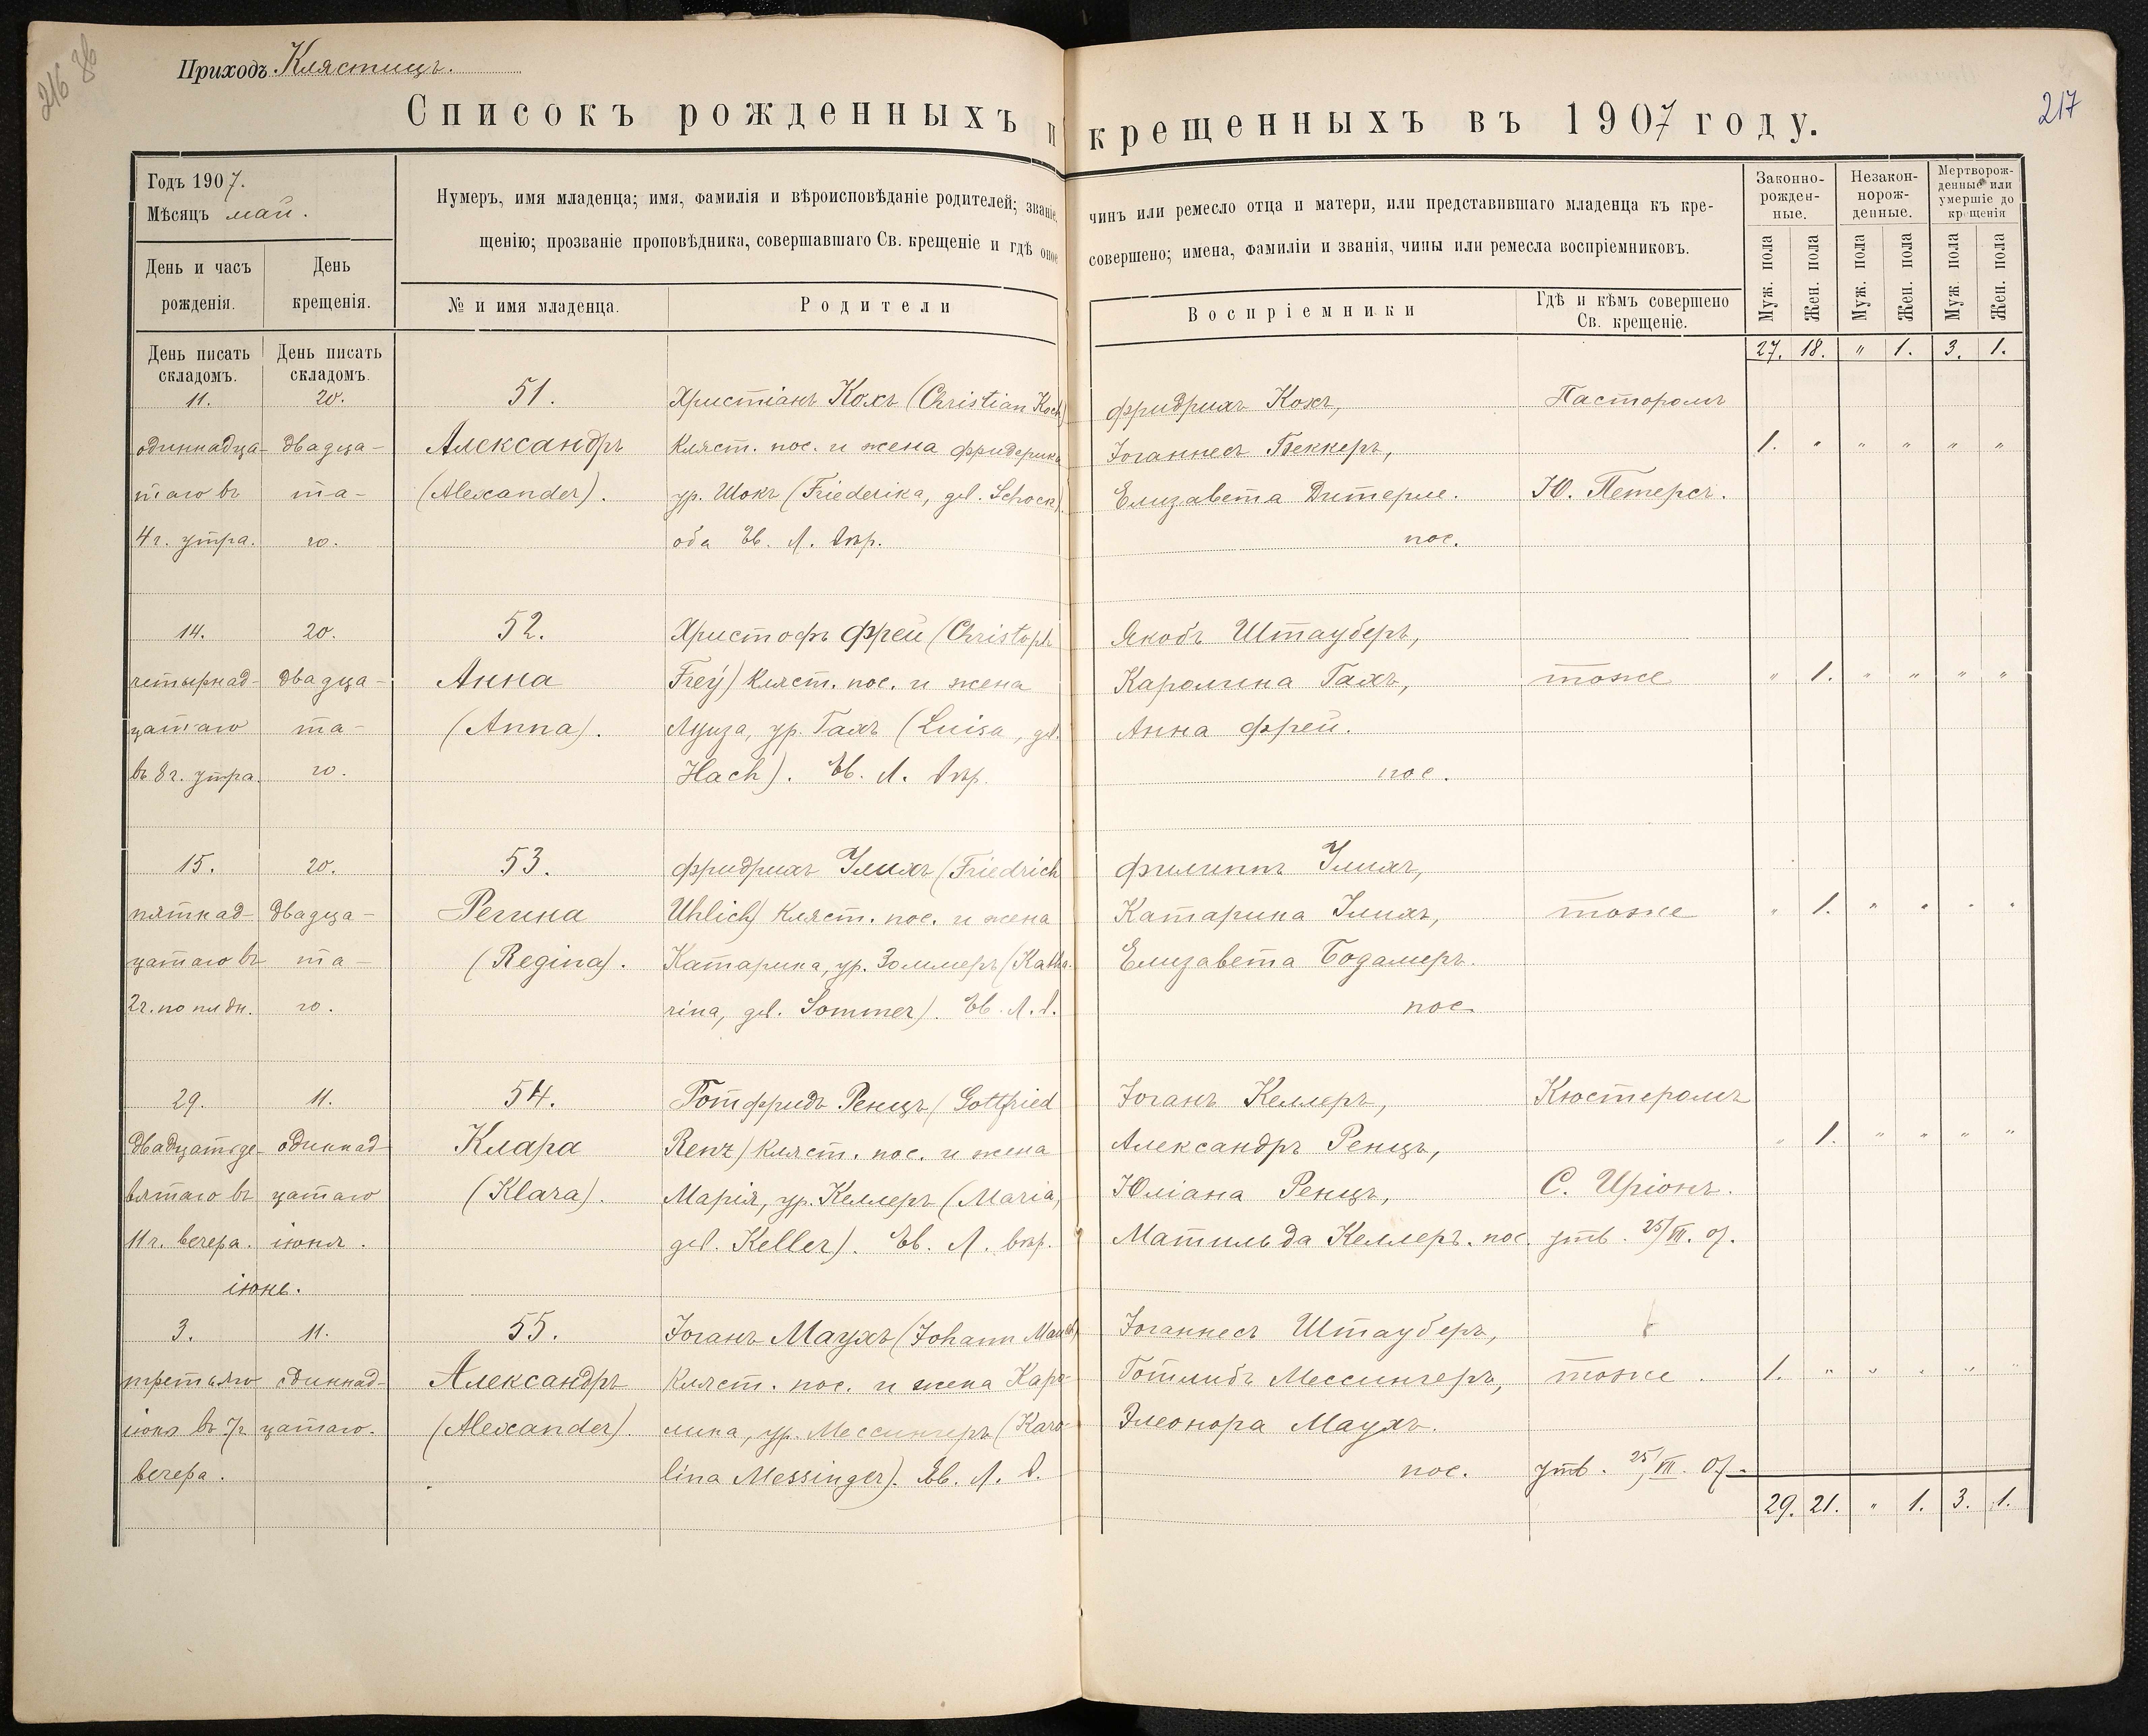 216 36
Приходъ Клястицъ.
Списокъ рожденныхъ и крещенныхъ въ 1907 году.
217
Годъ 1907.
Мѣсяцъ май.
День и часъ рожденія.
День крещенія.
Нумеръ, имя младенца; имя, фамилія и вѣроисповѣданіе родителей; званіе, чинъ или ремесло отца и матери, или представившаго младенца къ кре-
щенію; прозваніе проповѣдника, совершавшаго Св. крещеніе и гдѣ оное совершено; имена, фамиліи и званія, чины или ремесла воспріемниковъ.
№ и имя младенца.
Родители
Воспріемники
Гдѣ и кѣмъ совершено Св. крещеніе.
Законно-рожден-ные.
Незакон-норож-денные.
Мертворож-денные или умершіе до крещенія
Муж. пола Жен. пола Муж. пола Жен. пола Муж. пола Жен. пола
27. 18. " 1. 3. 1.
День писать складомъ.
День писать складомъ.
11. 20. 51. Христіанъ Кохъ (Christian Koch) Фридрихъ Кохъ, Пасторомъ
одиннадца- двадца- Александръ Кляст. пос. и жена Фридерика Іоганнесъ Беккеръ, 1. " " " " "
таго въ та- (Alexander). ур. Шокъ (Friederika, geb. Schock) Елизавета Дитерле. Ю. Петерсъ.
4 ч. утра. го. оба Ев. Л. вѣр. пос.
14. 20. 52. Христофъ Фрей (Christoph Якобъ Штауберъ,
четырнад- двадца- Анна Frey) Кляст. пос. и жена Каролина Гахъ, тоже " 1. " " " "
цатаго та- (Anna). Луиза, ур. Гахъ (Luisa, geb. Анна Фрей.
въ 8 ч. утра. го. Hach). Ев. Л. вѣр. пос.
15. 20. 53. Фридрихъ Улихъ (Friedrich Филиппъ Улихъ,
пятнад- двадца- Регина Uhlich) Кляст. пос. и жена Катарина Улихъ, тоже " 1. " " " "
цатаго въ та- (Regina). Катарина, ур. Зоммеръ (Katha- Елизавета Бодамеръ.
2 ч. по пл дн. го. rina, geb. Sommer). Ев. Л. в. пос.
29. 11. 54. Готфридъ Ренцъ (Gottfried Іоганъ Келлеръ, Кюстеромъ
двадцатьде- одиннад- Клара Renz) Кляст. пос. и жена Александръ Ренцъ, " 1. " " " "
вятаго въ цатаго (Klara). Марія, ур. Келлеръ (Maria, Юліана Ренцъ, С. Иріонъ.
11 ч. вечера. іюня. geb. Keller). Ев. Л. вѣр. Матильда Келлеръ. пос. утв. 25/VII. 07.
іюнь.
3. 11. 55. Іоганъ Маухъ (Johann Mauch) Іоганнесъ Штауберъ,
третьяго одиннад- Александръ Кляст. пос. и жена Каро- Готлибъ Мессингеръ, тоже. 1. " " " " "
іюня въ 7 ч. цатаго. (Alexander). лина, ур. Мессингеръ (Karo- Элеонора Маухъ.
вечера. lina Messinger). Ев. Л. в. пос. утв. 25/VII. 07.
29. 21. " 1. 3. 1.